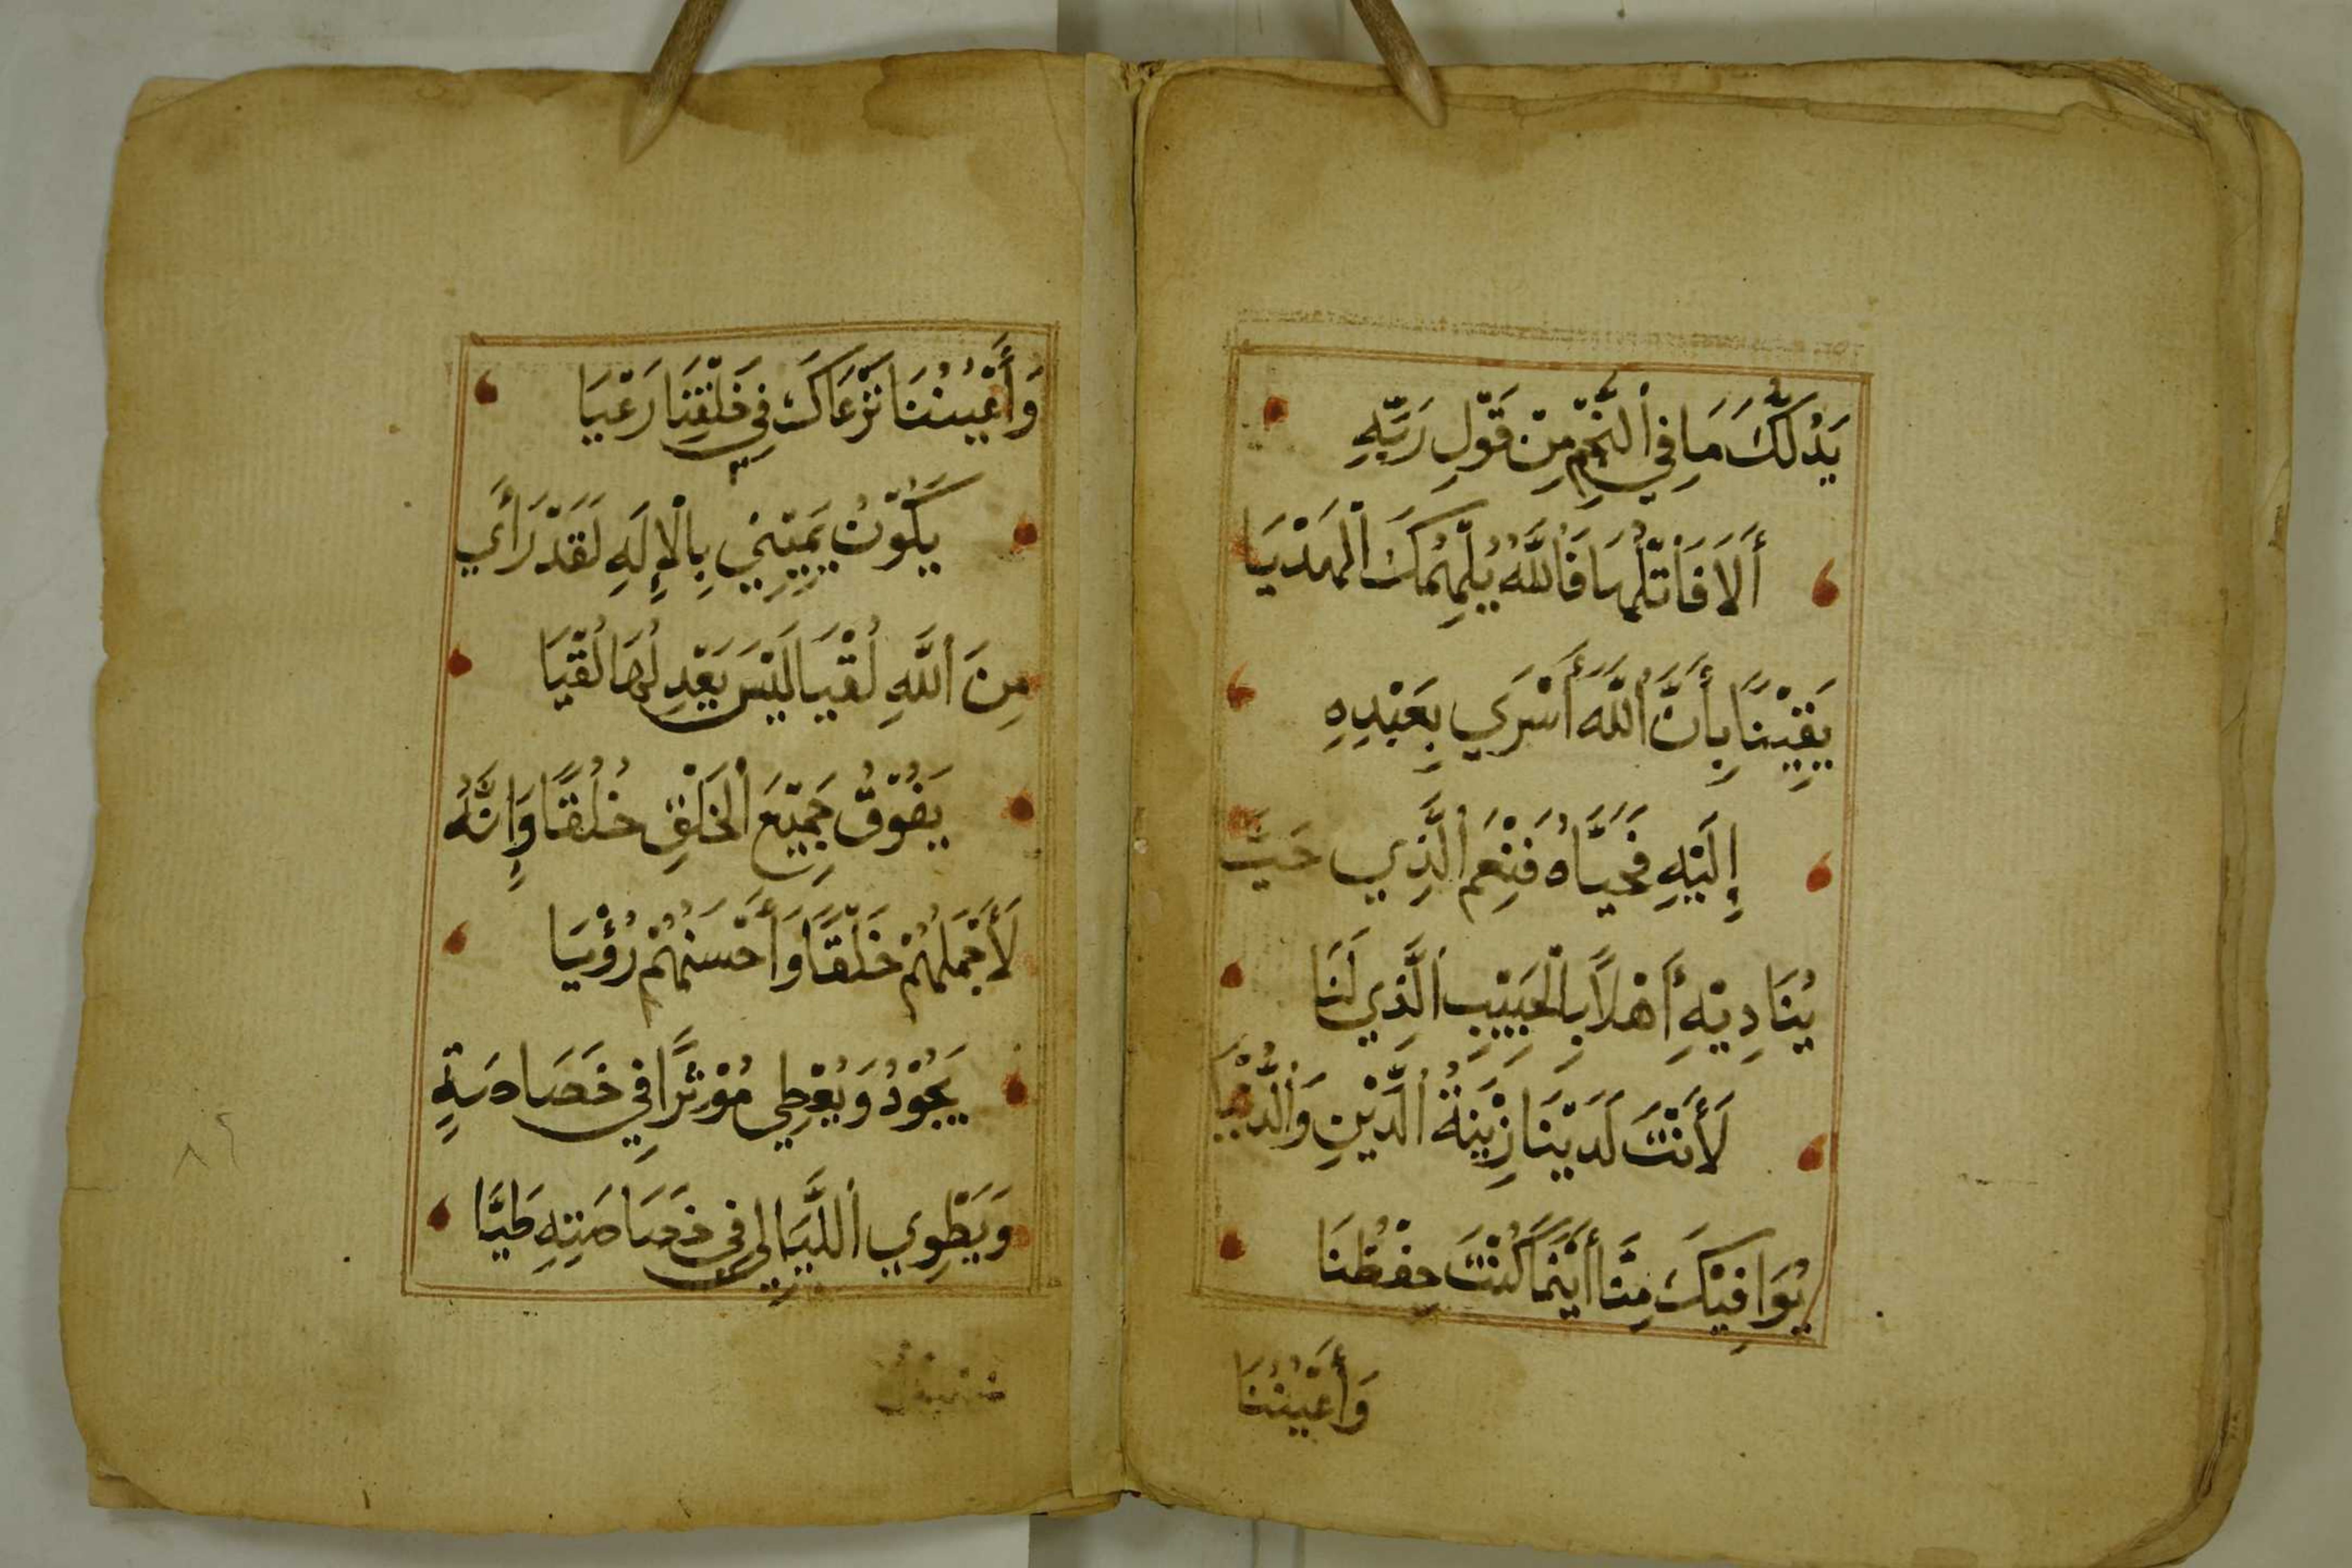 يَدُلُّكَ مَا فِي ٱلنَّجْمِ مِنْ قَوْلِ رَبِّهِ
أَلَا فَٱتْلُهَا فَٱللَّهُ يُلْهِمُكَ ٱلْهَدْيَا
يَقِيْنًا بِأَنَّ ٱللَّهَ أَسْرَي بِعَبْدِهِ
إِلَيْهِ فَحَيَّاهُ فَنِعْمَ ٱلَّذِي حَيَّ
يُنَادِيْهِ أَهْلًا بِالْحَبِيْبِ ٱلَّذِي لَنَا
لَأَنْتَ لَدَيْنَا زِيْنَةُ ٱلدِّيْنِ وَٱلدُّنْيَا
يُوَافِيْكَ مِنَّا أَيْنَمَا كُنْتَ حِفْظُنَا
وَأَعْيُنُنَا
وَأَعْيُنُنَا تَرْعَاكَ فِي خَلْقِنَا رَعْيَا
يَكُوْنُ يَمِيْنِي بِالْإِلَهِ لَقَدْ رَأَي
مِنَ ٱللَّهِ لُقْيَا لَيْسَ بَعْدِ لُهَا لُقْيَا
يَفُوْقُ جَمِيْعَ ٱلْخَلْقِ خُلُقًا وَإِنَّهُ
لَأَجْمَلُهُمْ خَلْقًا وَأَحْسَنُهُمْ رُؤْيَا
يَجُوْدُ وَيُعْطِي مُؤْثِرًا فِي خَصَاصَةٍ
وَيَطْوِي ٱللَّيَالِي فِي خَصَاصَتِهِ طَيَّا